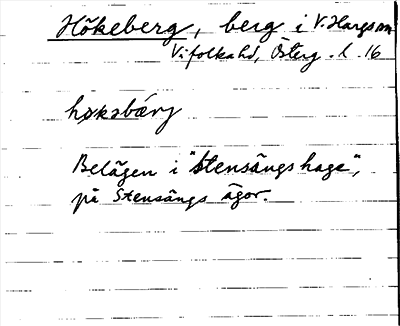 Hökeberg, berg i V. Hargs sn
Vifolka hd, Österg. l. 16
høkəbærj
Belägen i "Stensängs hage",
på Stensängs ägor.